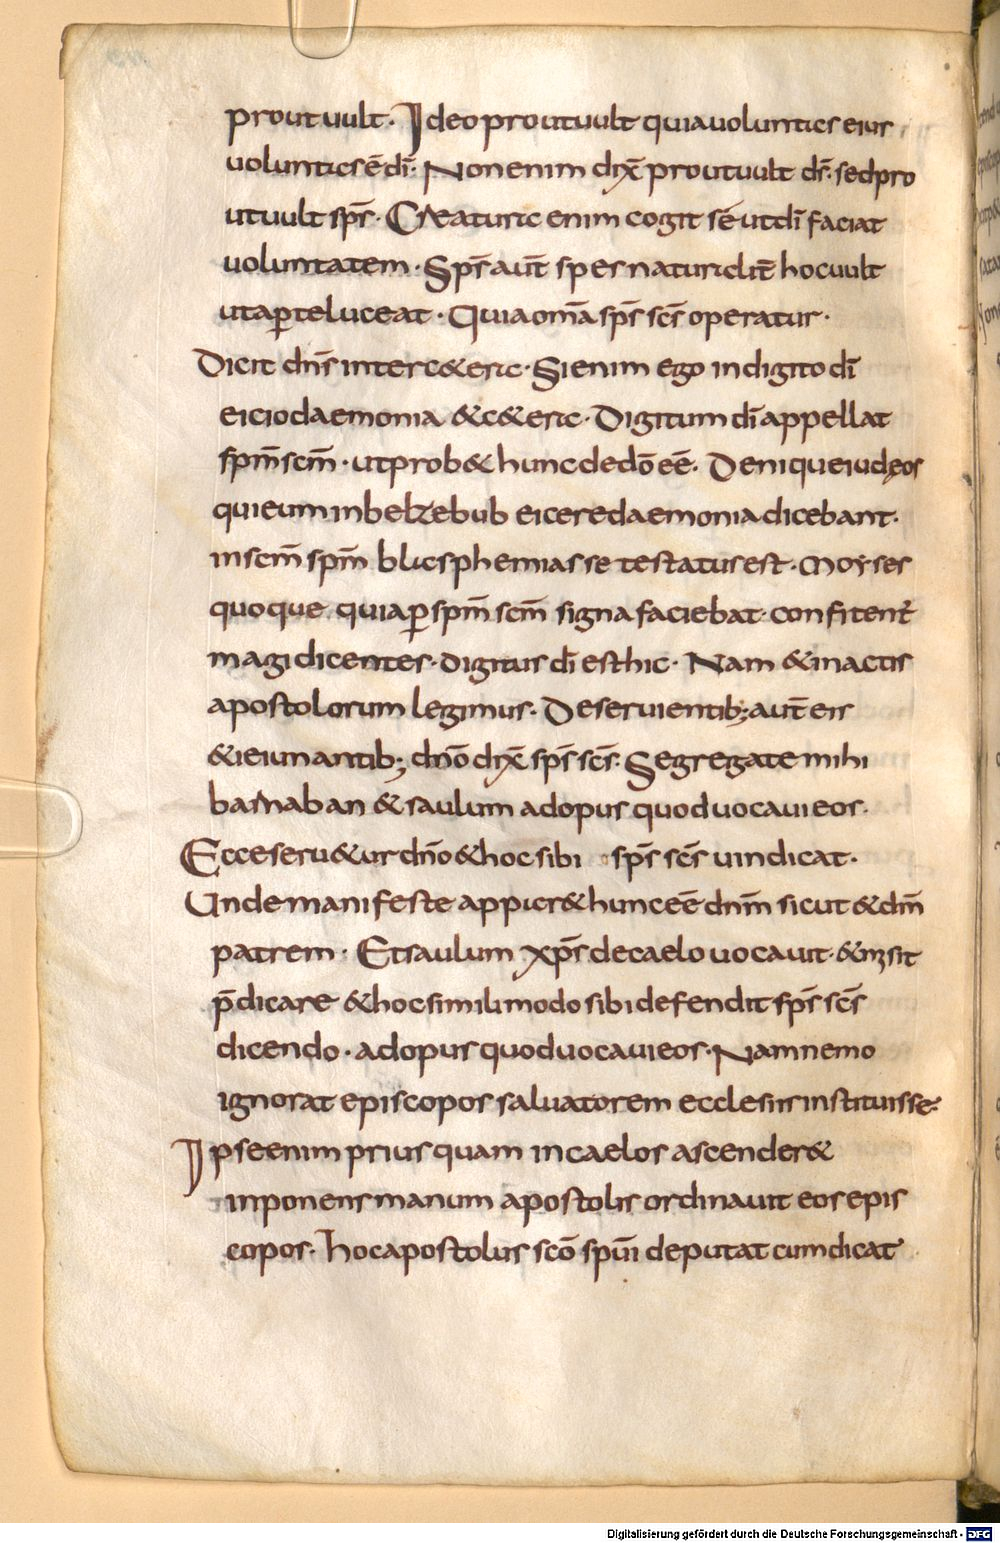 prout uult. Ideo prout uult quia uoluntas eius
uoluntas ē dī. Non enim dix̄ prout uult ds̄. sed pro
ut uult sps̄. Creatura enim cogit sē ut dī faciat
uoluntatem. Sps̄ aut̄ sp̄ es naturalit̄ hoc uult
ut aꝑte luceat. Quia om̄a sps̄ scs̄ operatur.
Dicit dn̄s inter c&era. Si enim ego in digito dī
eicio daemonia &c&era. Digitum dī appellat
spm̄ scm̄. ut prob& hunc de dō eē. Denique iudęos
qui eum in belzebub eicere daemonia dicebant.
in scm̄ spm̄ blasphemiasse testatus est. Moyses
quoque quia ꝑ spm̄ scm̄ signa faciebat confitent̄
magi dicentes. digitus dī est hic. Nam & in actis
apostolorum legimus. Deseruientib; aut̄ eis
& ieiunantib; dn̄o dix̄ sps̄ scs̄. Segregate mihi
barnaban & saulum ad opus quod uocaui eos.
Ecce seru&ur dn̄o & hoc sibi sps̄ scs̄ uindicat.
Unde manifeste appar& hunc eē dnm̄ sicut & dm̄
patrem. Et saulum xps̄ de caelo uocauit. & misit
p̄dicare & hoc simili modo sibi defendit sps̄ scs̄
dicendo. ad opus quod uocaui eos. Nam nemo
ignorat episcopos saluatorem ecclesiis instituisse.
Ipse enim prius quam in caelos ascender&
inponens manum apostolis ordinauit eos epis
copos. hoc apostolus scō spui deputat cum dicat
Digitalisierung gefördert durch die Deutsche Forschungsgemeinschaft - DFG